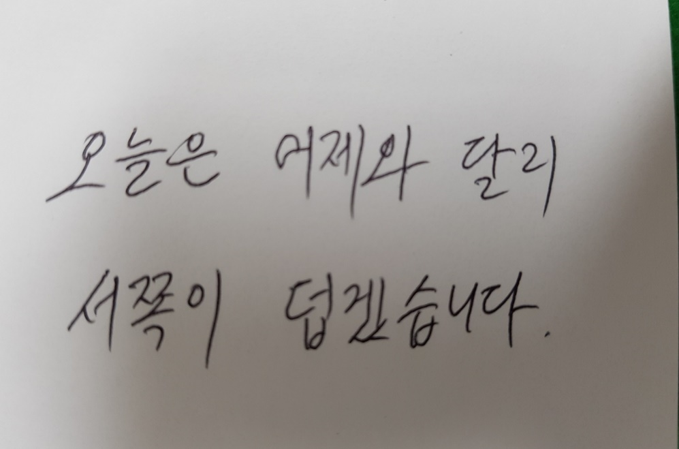 오늘은 어제와 달리
서쪽이 덥겠습니다.